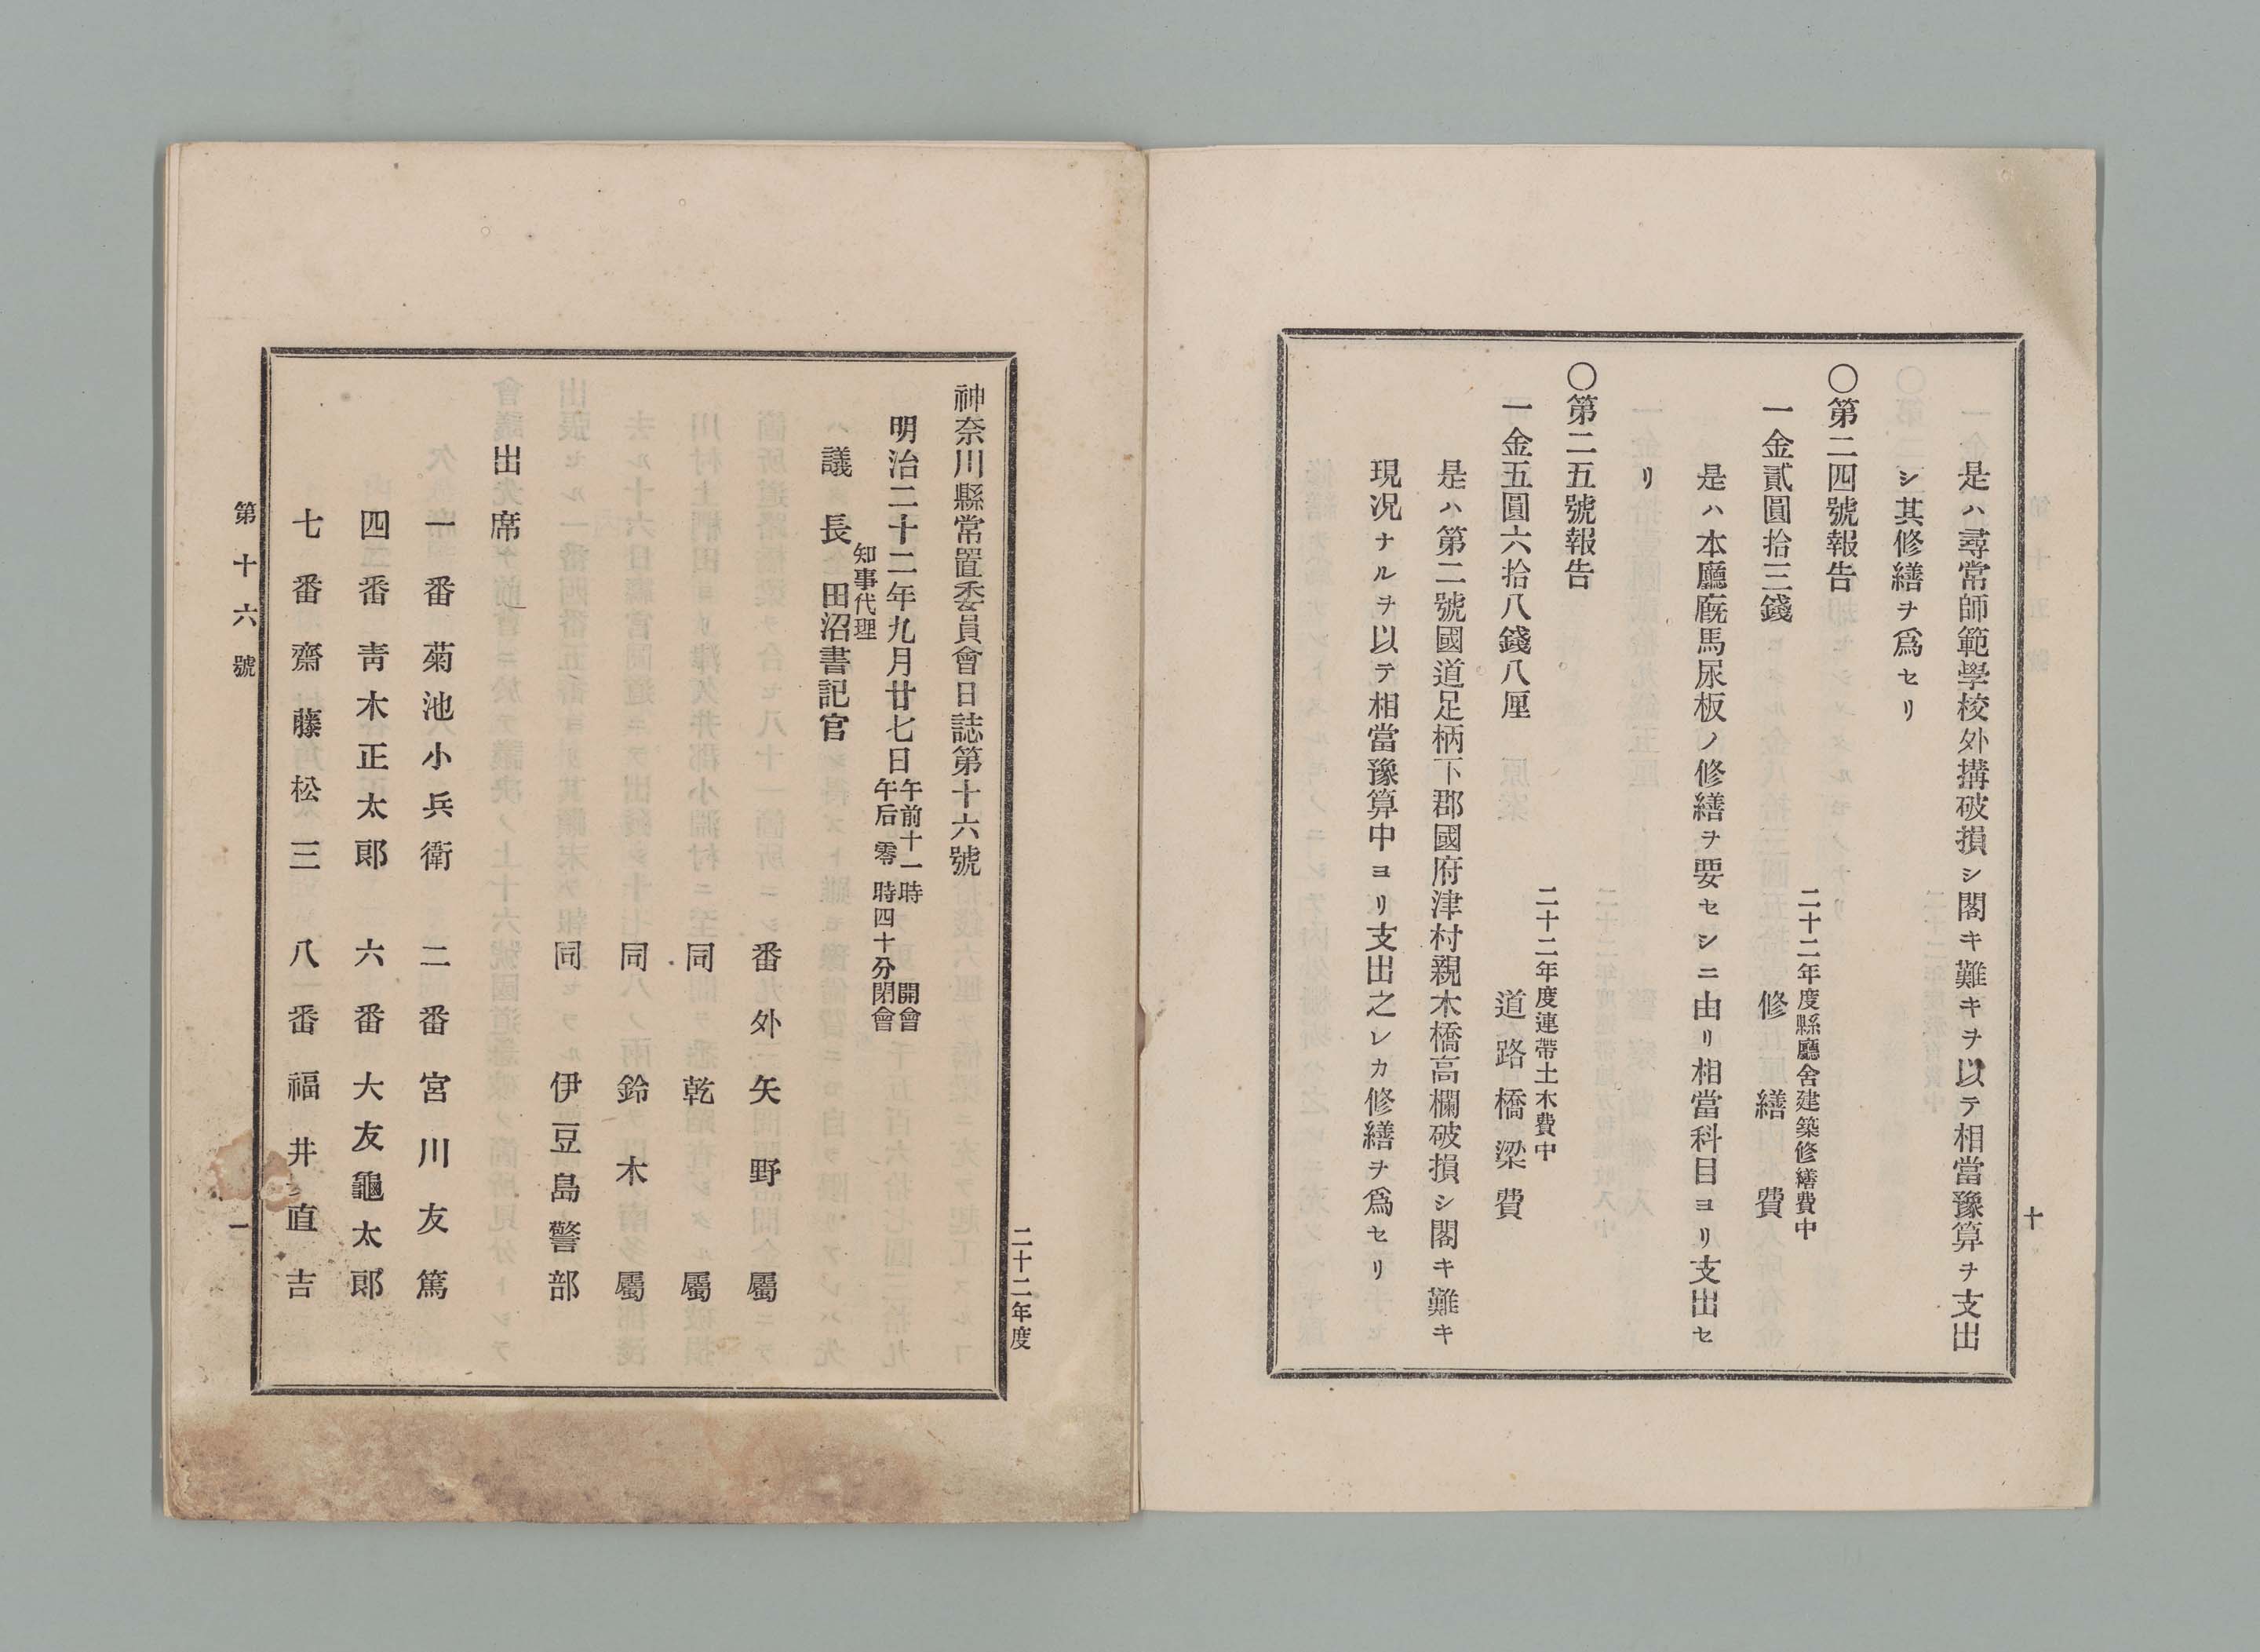 十
是ハ尋常師範學校外搆破損シ閣キ難キヲ以テ相當豫算ヲ支出
シ其修繕ヲ爲セリ
〇第二四號報告
二十二年度縣廳舍建築修繕費中
一金貳圓拾三錢 修繕費
是ハ本廳廐馬尿板ノ修繕ヲ要セシニ由リ相當科目ヨリ支出セ
リ
〇第二五號報告
二十二年度連帶土木費中
一金五圓六拾八錢八厘 道路橋梁費
是ハ第二號國道足柄下郡國府津村親木橋高欄破損シ閣キ難キ
現況ナルヲ以テ相當豫算中ヨリ支出之レカ修繕ヲ爲セリ
二十二年度
神奈川縣常置委員會日誌第十六號
明治二十二年九月廿七日午前十一時開會
午后零時四十分閉會
知事代理
議長 田沼書記官
番外 矢野屬
同 乾屬
同 鈴木屬
同 伊豆島警部
出席
一番 菊池小兵衛 二番 宮川友篤
四番 靑木正太郎 六番 大友龜太郎
七番 齋藤松三 八番 福井直吉
第十六號 一